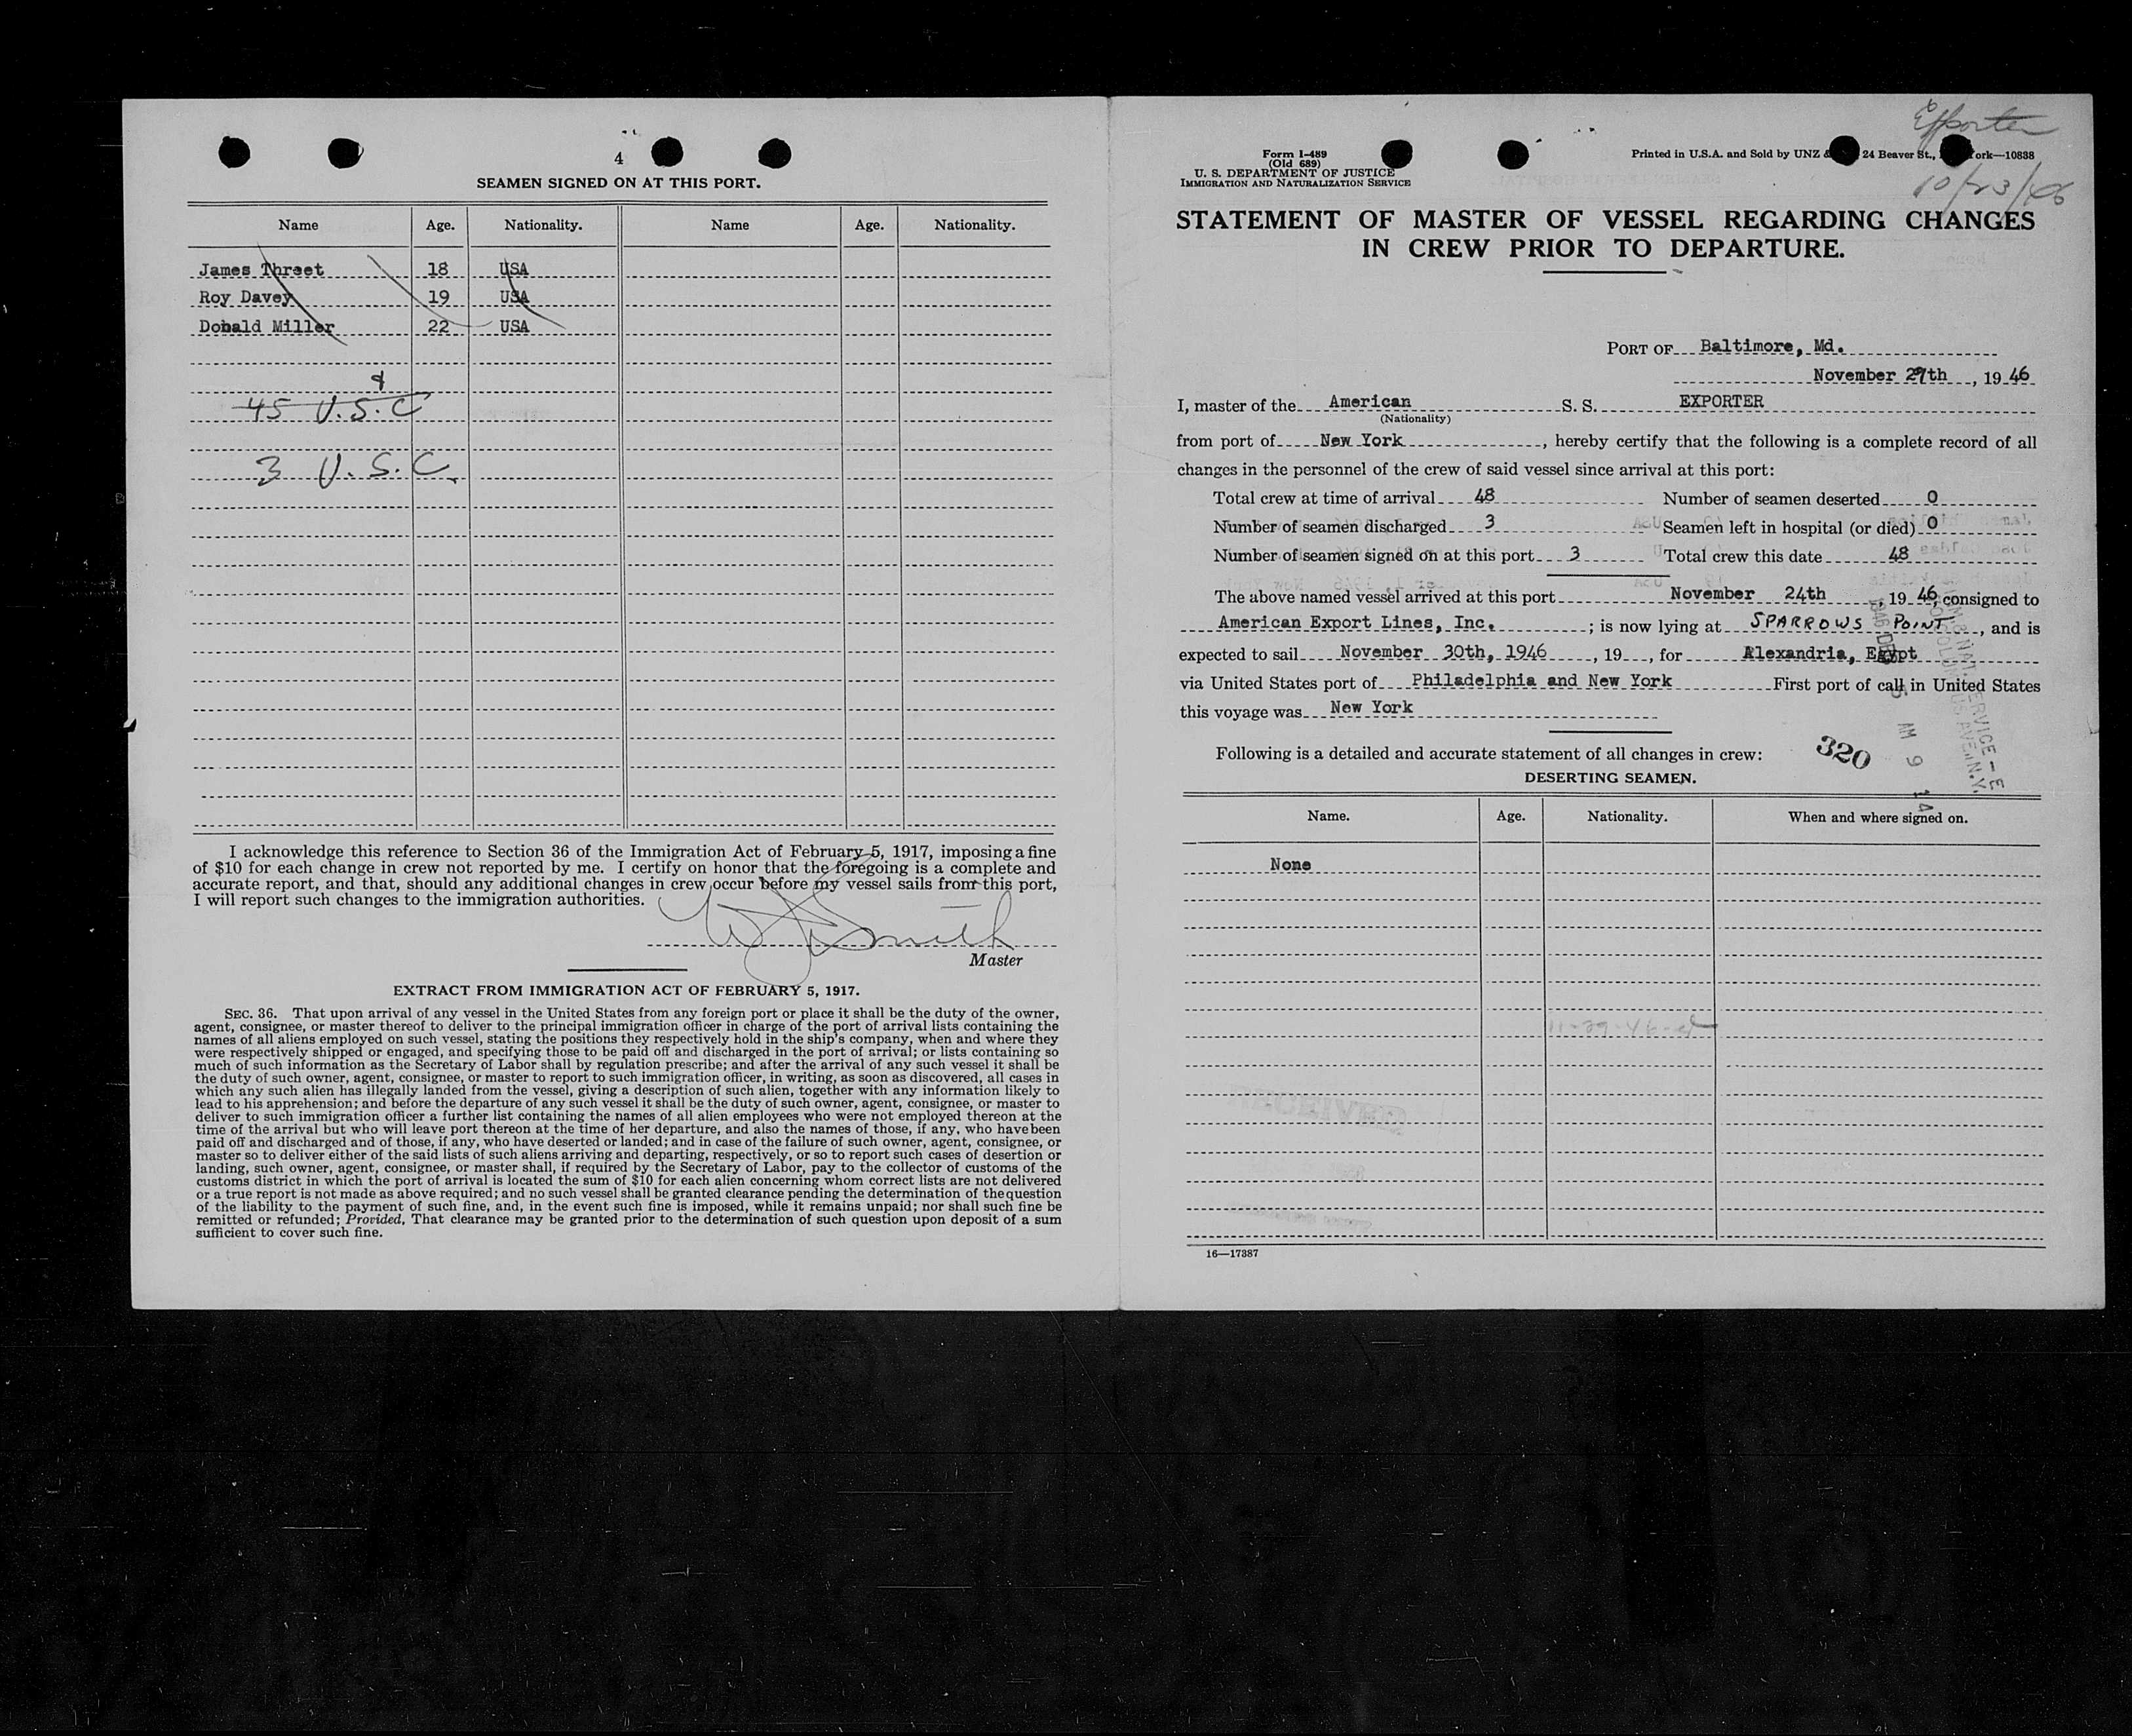 4
SEAMEN SIGNED ON AT THIS PORT.
Name Age. Nationality. Name Age. Nationality.
James Threet 18 USA
Roy Davey 19 USA
Donald Miller 22 USA
45 U.S.C
3 U.S.C.
I acknowledge this reference to Section 36 of the Immigration Act of February 5, 1917, imposing a fine
of $10 for each change in crew not reported by me. I certify on honor that the foregoing is a complete and
accurate report, and that, should any additional changes in crew occur before my vessel sails from this port,
I will report such changes to the immigration authorities.
Smith
Master
EXTRACT FROM IMMIGRATION ACT OF FEBRUARY 5, 1917.
SEC. 36. That upon arrival of any vessel in the United States from any foreign port or place it shall be the duty of the owner,
agent, consignee, or master thereof to deliver to the principal immigration officer in charge of the port of arrival lists containing the
names of all aliens employed on such vessel, stating the positions they respectively hold in the ship's company, when and where they
were respectively shipped or engaged, and specifying those to be paid off and discharged in the port of arrival; or lists containing so
much of such information as the Secretary of Labor shall by regulation prescribe; and after the arrival of any such vessel it shall be
the duty of such owner, agent, consignee, or master to report to such immigration officer, in writing, as soon as discovered, all cases in
which any such alien has illegally landed from the vessel, giving a description of such alien, together with any information likely to
lead to his apprehension; and before the departure of any such vessel it shall be the duty of such owner, agent, consignee, or master to
deliver to such immigration officer a further list containing the names of all alien employees who were not employed thereon at the
time of the arrival but who will leave port thereon at the time of her departure, and also the names of those, if any, who have been
paid off and discharged and of those, if any, who have deserted or landed; and in case of the failure of such owner, agent, consignee, or
master so to deliver either of the said lists of such aliens arriving and departing, respectively, or so to report such cases of desertion or
landing, such owner, agent, consignee, or master shall, if required by the Secretary of Labor, pay to the collector of customs of the
customs district in which the port of arrival is located the sum of $10 for each alien concerning whom correct lists are not delivered
or a true report is not made as above required; and no such vessel shall be granted clearance pending the determination of the question
of the liability to the payment of such fine, and, in the event such fine is imposed, while it remains unpaid; nor shall such fine be
remitted or refunded; Provided, That clearance may be granted prior to the determination of such question upon deposit of a sum
sufficient to cover such fine.
Exporter
10/23/46
Form I-489
(Old 689)
U. S. DEPARTMENT OF JUSTICE
IMMIGRATION AND NATURALIZATION SERVICE
Printed in U.S.A. and Sold by UNZ & 24 Beaver St., ork—10838
STATEMENT OF MASTER OF VESSEL REGARDING CHANGES
IN CREW PRIOR TO DEPARTURE.
PORT OF Baltimore, Md.
November 29th, 1946
I, master of the American S. S. EXPORTER
(Nationality)
from port of New York, hereby certify that the following is a complete record of all
changes in the personnel of the crew of said vessel since arrival at this port:
Total crew at time of arrival 48 Number of seamen deserted 0
Number of seamen discharged 3 Seamen left in hospital (or died) 0
Number of seamen signed on at this port 3 Total crew this date 48
The above named vessel arrived at this port November 24th, 1946, consigned to
American Export Lines, Inc. ; is now lying at SPARROWS POINT, and is
expected to sail November 30th, 1946, 19 , for Alexandria, Egypt
via United States port of Philadelphia and New York First port of call in United States
this voyage was New York
Following is a detailed and accurate statement of all changes in crew:
320
DESERTING SEAMEN.
Name. Age. Nationality. When and where signed on.
None
16—17387